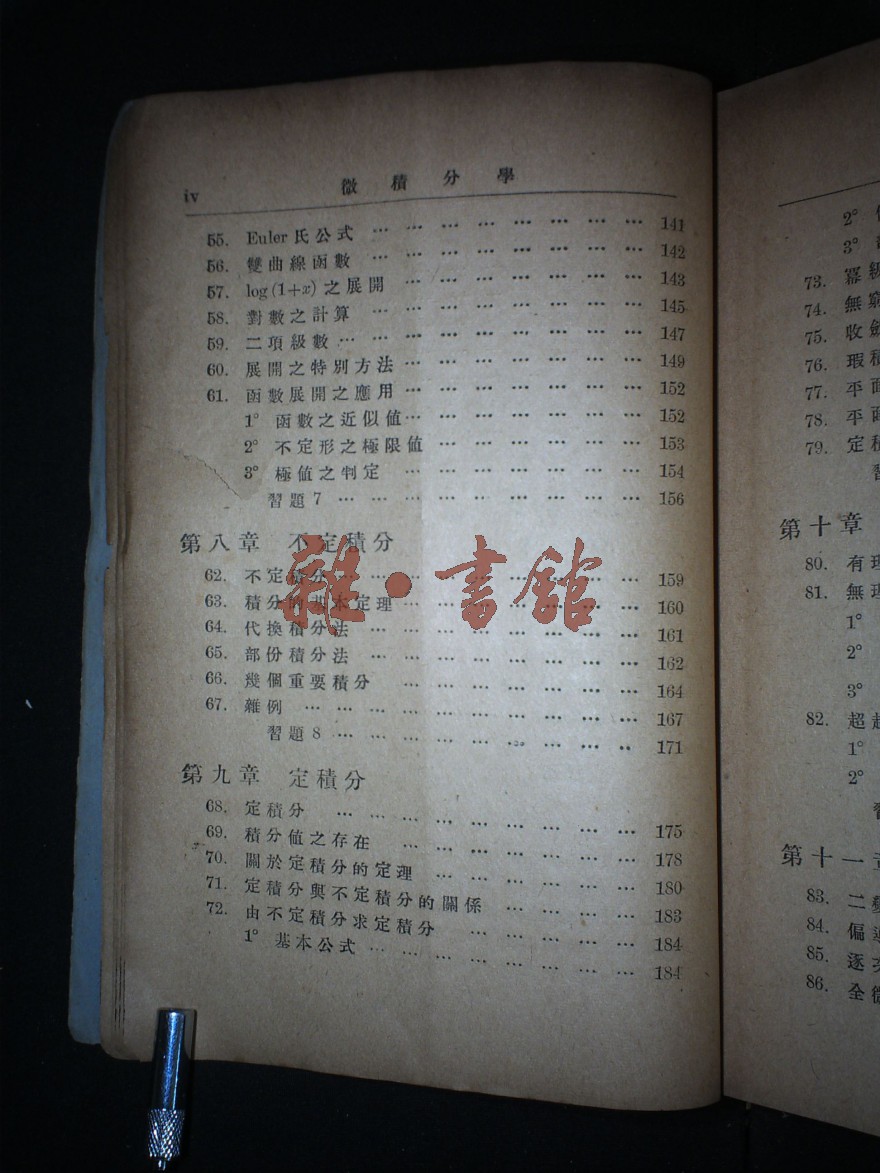 iv 微積分學
55. Euler 氏公式 … … … … … … … … 141
56. 雙曲線函數 … … … … … … … … 142
57. log (1+x) 之展開 … … … … … … … 143
58. 對數之計算 … … … … … … … … 145
59. 二項級數 … … … … … … … … … 147
60. 展開之特別方法 … … … … … … … 149
61. 函數展開之應用 … … … … … … … 152
1° 函數之近似値 … … … … … … … 152
2° 不定形之極限値 … … … … … … 153
3° 極値之判定 … … … … … … … 154
習題 7 … … … … … … … … … 156
第八章 不定積分
62. 不定積分 … … … … … … … … … 159
63. 積分的基本定理 … … … … … … … 160
64. 代換積分法 … … … … … … … … 161
65. 部份積分法 … … … … … … … … 162
66. 幾個重要積分 … … … … … … … 164
67. 雜例 … … … … … … … … … … 167
習題 8 … … … … … … … … … 171
第九章 定積分
68. 定積分 … … … … … … … … … 175
69. 積分値之存在 … … … … … … … 178
70. 關於定積分的定理 … … … … … … 180
71. 定積分與不定積分的關係 … … … … 183
72. 由不定積分求定積分 … … … … … 184
1° 基本公式 … … … … … … … … 184
2°
3°
73. 冪級
74. 無窮
75. 收斂
76. 瑕積
77. 平面
78. 平面
79. 定積
第十章
80. 有理
81. 無理
1°
2°
3°
82. 超越
1°
2°
第十一章
83. 二變
84. 偏
85. 逐次
86. 全微
雜·書館